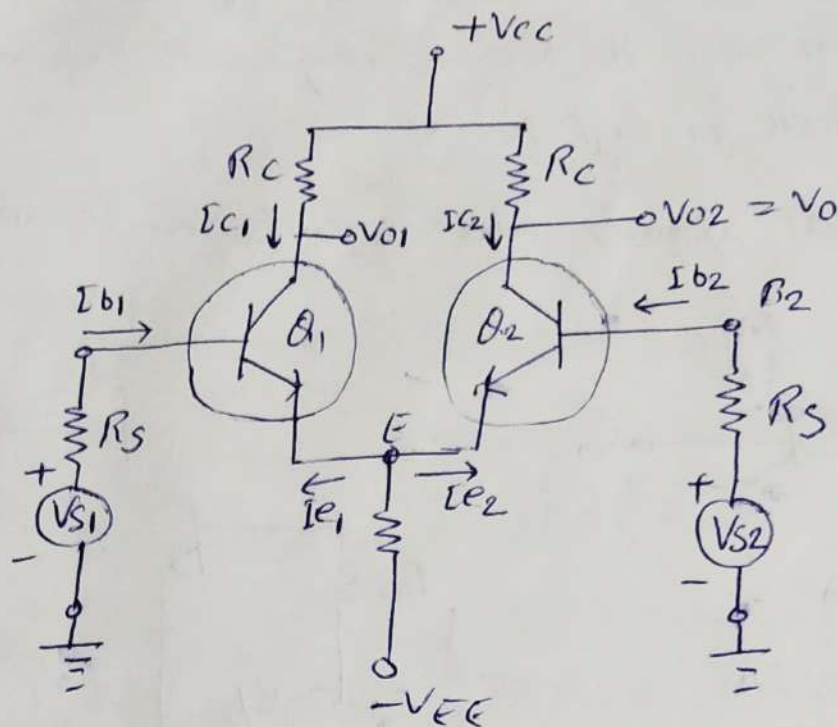 +Vcc
Rc Rc
Ic1 ↓ Vo1 Ic2 ↓ Vo2 = Vo
Ib1 Q1 Q2 Ib2 B2
Rs E Rs
+ Ie1 Ie2 +
Vs1 Vs2
- -
-VEE